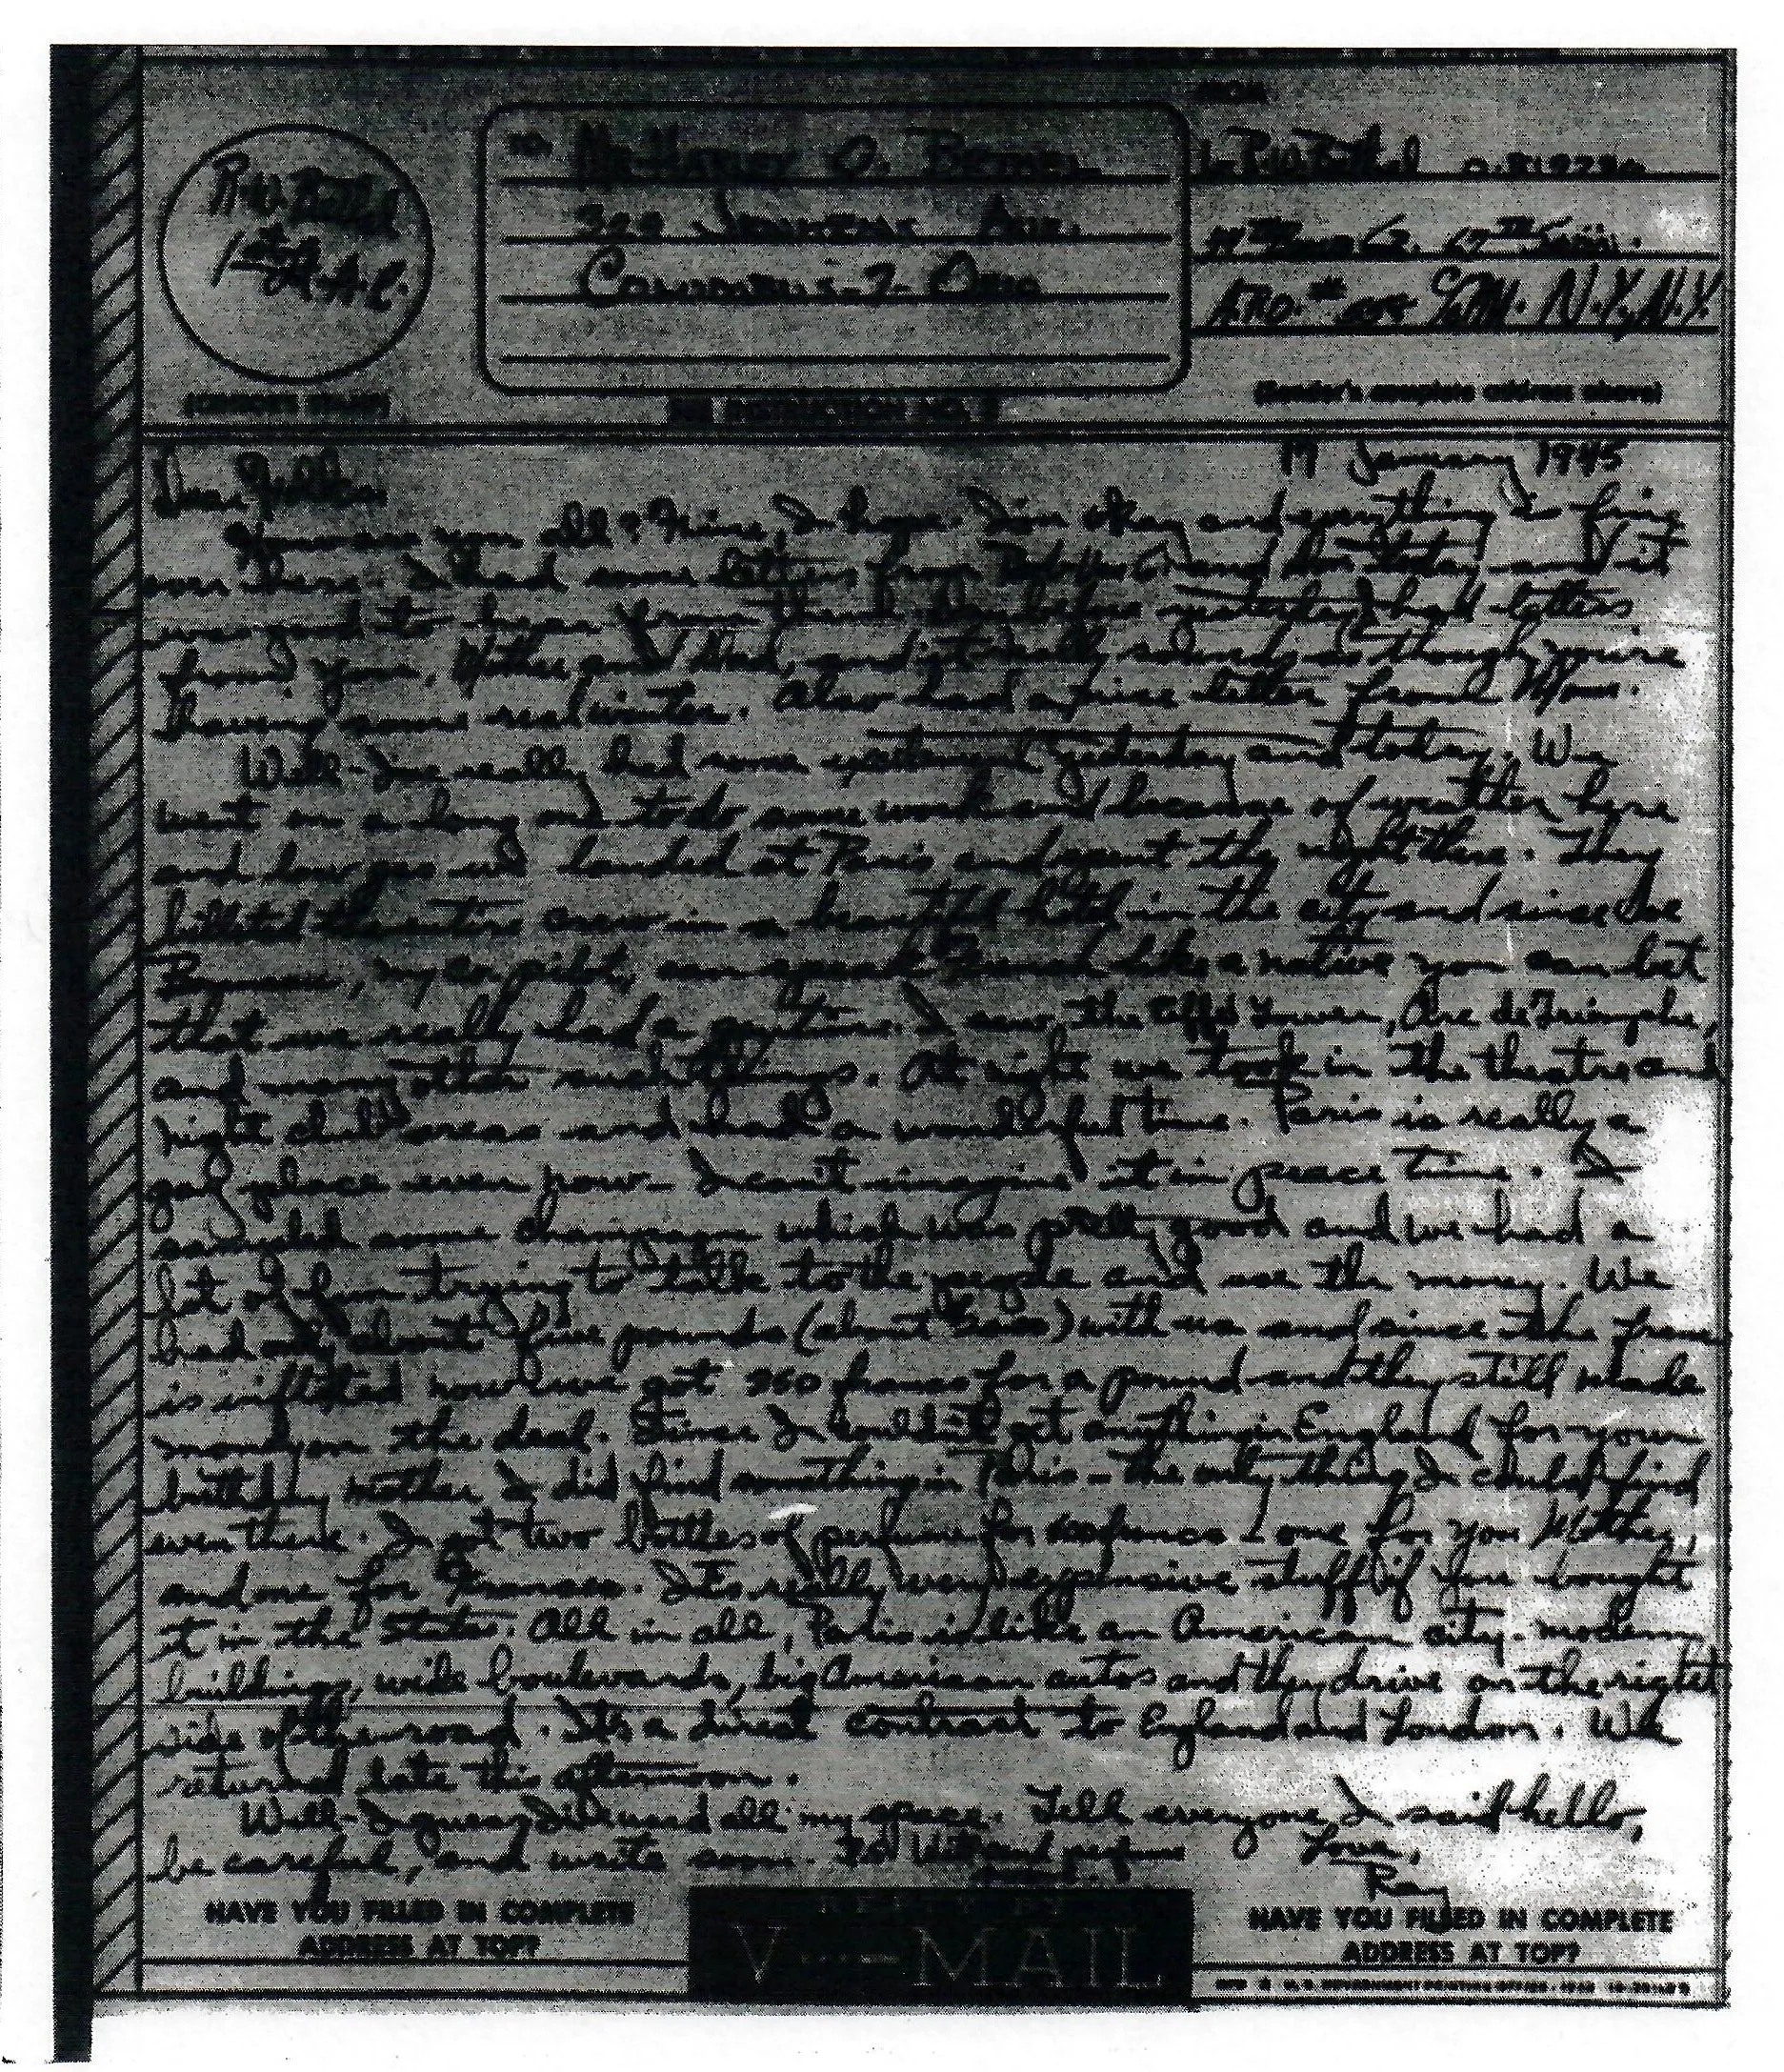 FROM
TO:
R.W. Bethel
1st Lt. A.C.
Mr. Harley O. Bethel
Ave.
Columbus-7-Ohio
Lt. R.W. Bethel
A.P.O. # N.Y., N.Y.
(CENSOR'S STAMP)
SEE INSTRUCTION NO. 2
(Sender's complete address above)
January 1945
Dear Folks,
How are you all? Fine, I hope. I'm okay and everything is fine
over here. I had some letters from and today and it
was good to hear from them. day before yesterday I had letters
from you, Mother and Dad, and it really sounds as though you're
having some real winter. Also had a nice letter from
Well - I've really had some excitement yesterday and today. We
went on a long to do some work and because of weather here
and low gas we landed at Paris and spent the night there. They
billeted the entire crew in a beautiful hotel in the city and since
my co-pilot, can speak French like a native you can bet
that we really had a time. I saw the Eiffel Tower, Arc de Triomphe,
and many other such things. At night we took in the theatre and
night club areas and had a wonderful time. Paris is really a
gay place even now - I can't imagine it in peace time. I
sampled some champagne which was pretty good and we had a
lot of fun trying to talk to the people and use the money. We
had only about five pounds (about ) with us and since the franc
is inflated now we got francs for a pound and they still made
money on the deal. Since I couldn't get anything in England for your
birthday mother I did find something in Paris - the only thing I could find
even there. I got two bottles of perfume for francs one for you Mother,
and one for Frances. It's really very expensive stuff if you bought
it in the states. All in all, Paris is like an American city - modern
buildings, wide boulevards, big American autos and they drive on the right
side of the road. It's a direct contrast to England and London. We
returned late this afternoon.
Well - I guess I've used all my space. Tell everyone I said hello,
be careful, and write soon.
Love,
Ray
HAVE YOU FILLED IN COMPLETE
ADDRESS AT TOP?
V···—MAIL
HAVE YOU FILLED IN COMPLETE
ADDRESS AT TOP?